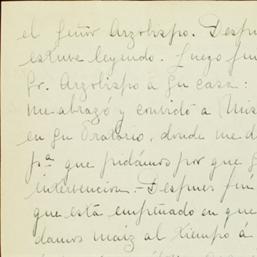 el Señor Arzobispo. Despu
estuve leyendo. Luego fui
Sr. Arzobispo á su casa:
me abrazó y convidó a Mis
en su Oratorio, donde me d
pª que pidámos por que S
intervencion.- Despues fui
que está empeñado en que
damos maiz al tiempo á